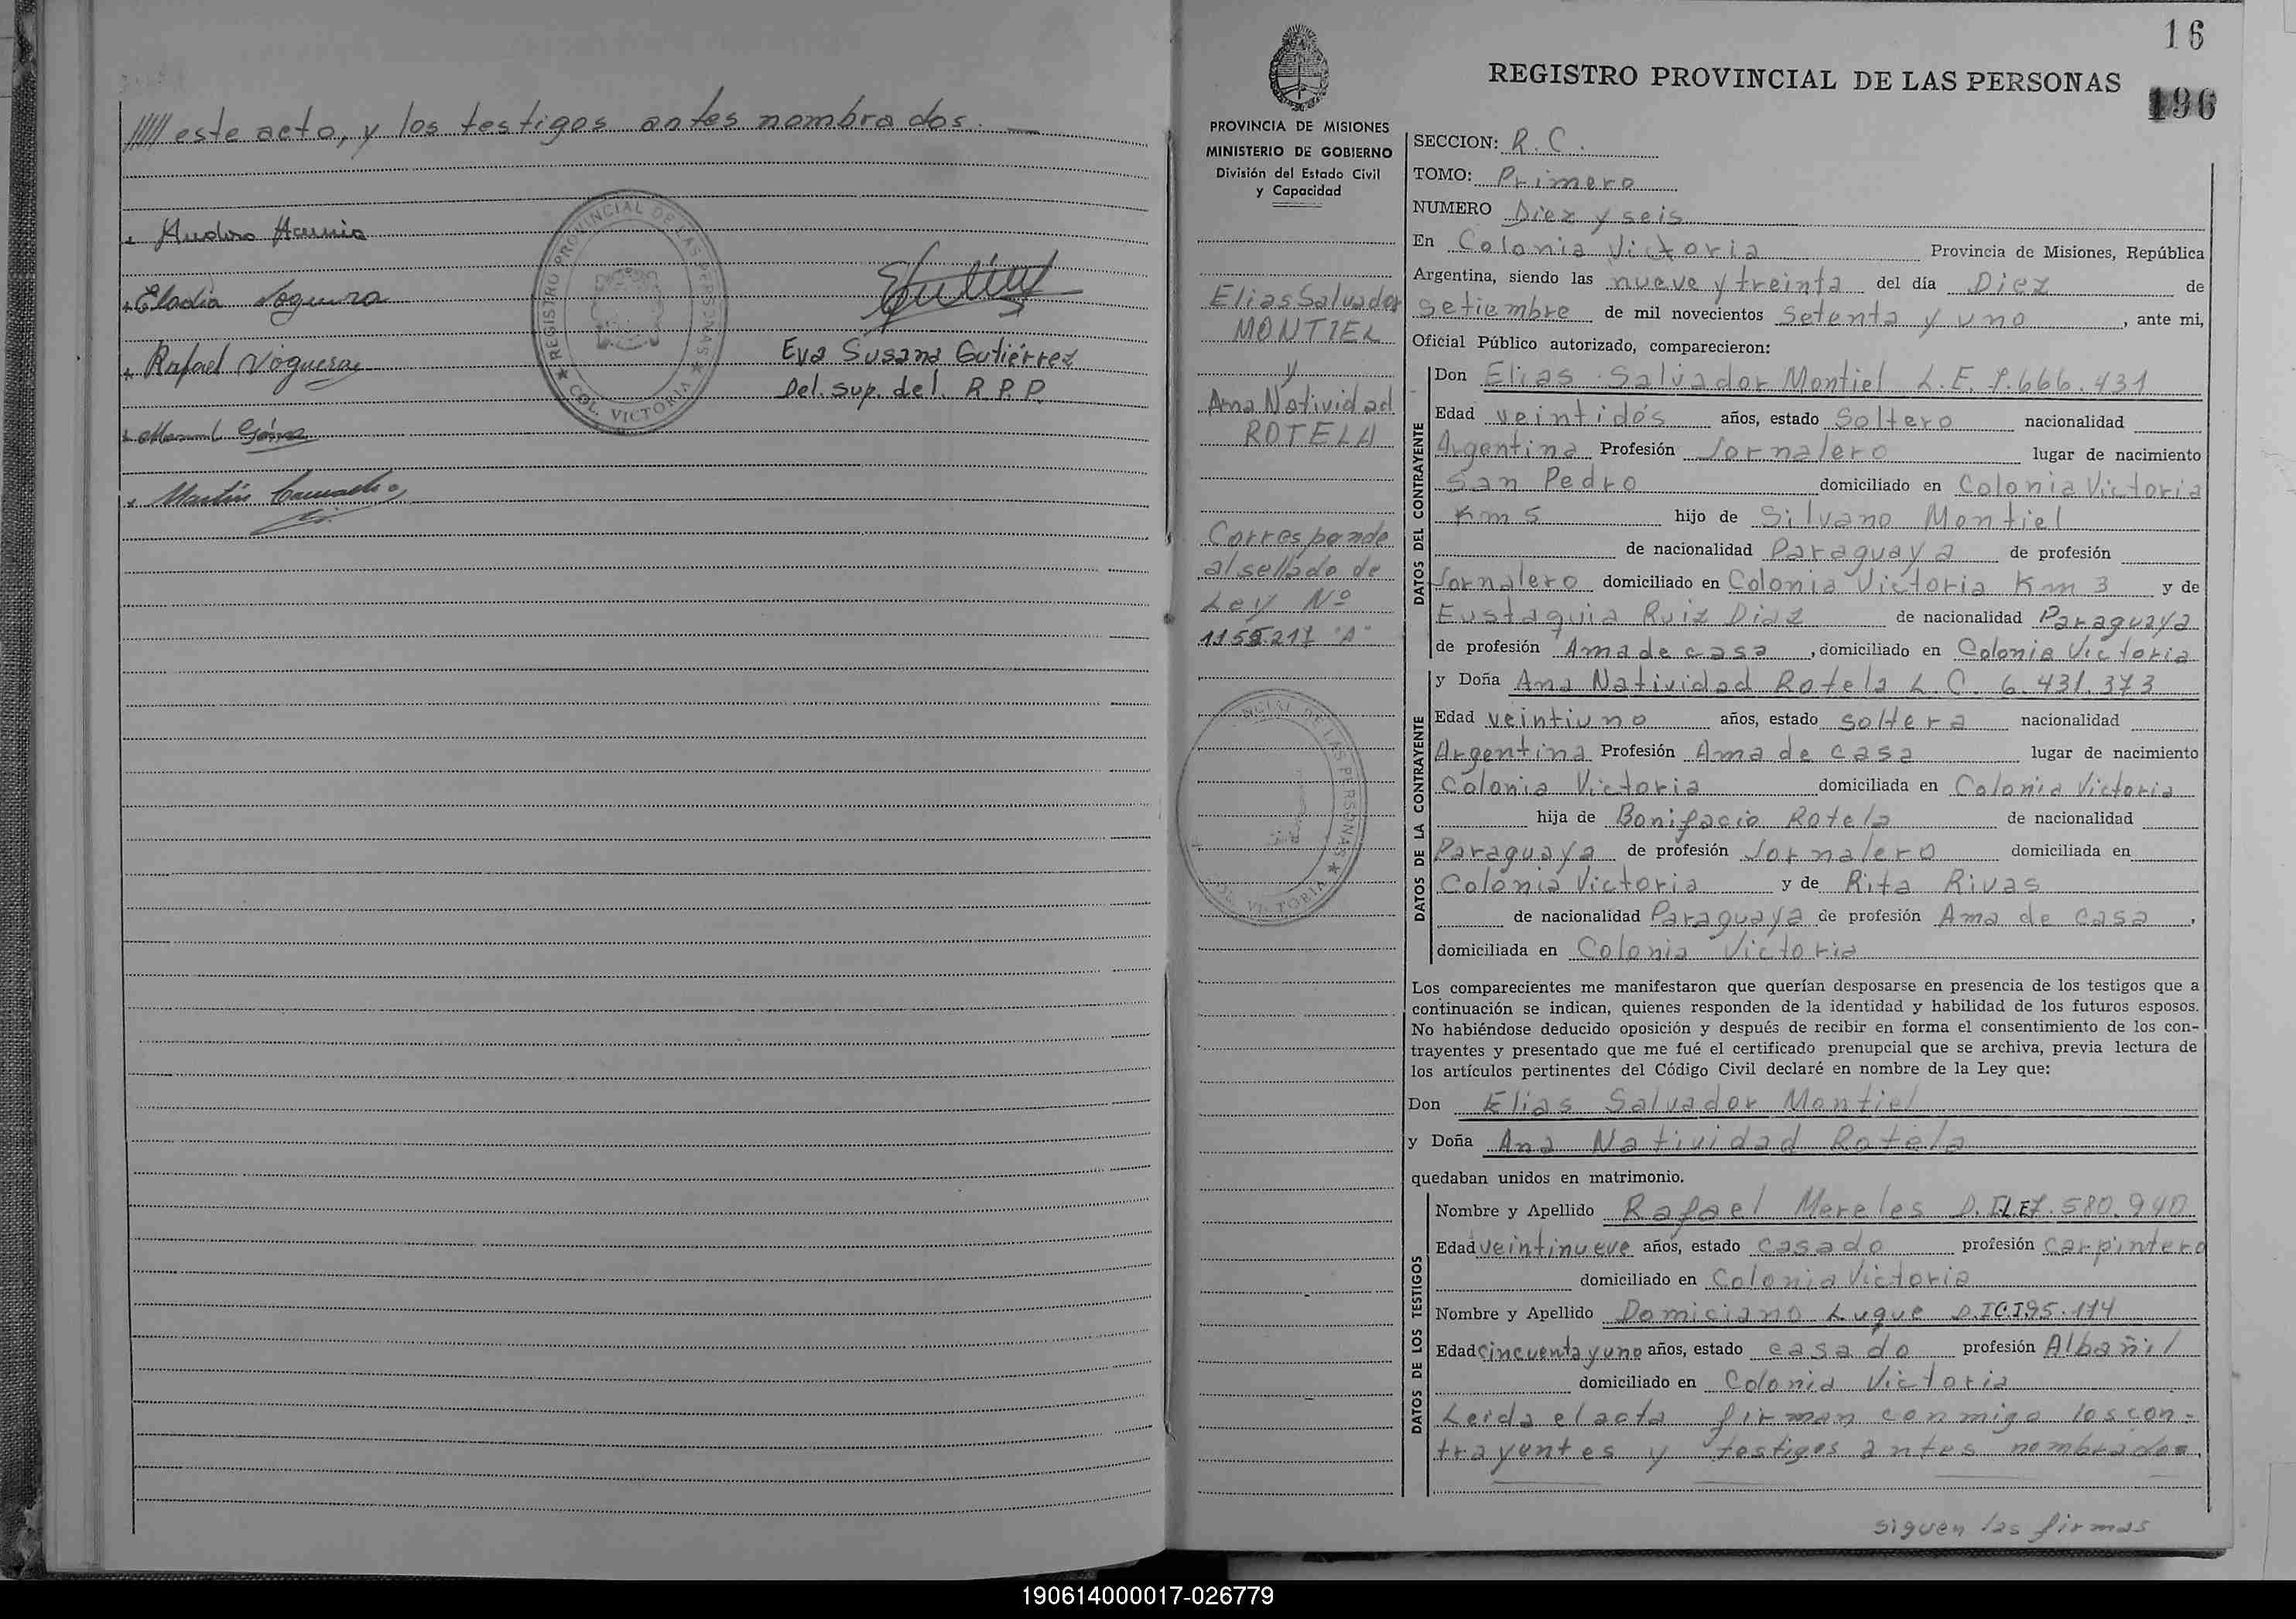 ///// este acto, y los testigos antes nombrados. —
REGISTRO PROVINCIAL DE LAS PERSONAS
★ COL. VICTORIA ★
Eladia Noguera
Rafael Noguera
Eva Susana Gutiérrez
Del. sup. del. R.P.P.
Manuel
Martin Camacho
16
REGISTRO PROVINCIAL DE LAS PERSONAS
196
PROVINCIA DE MISIONES
MINISTERIO DE GOBIERNO
División del Estado Civil
y Capacidad
Elias Salvador
MONTIEL
y
Ana Natividad
ROTELA
Corresponde
al sellado de
Ley Nº
"A"
SECCION: R.C.
TOMO: Primero
NUMERO Diez y seis
En Colonia Victoria Provincia de Misiones, República
Argentina, siendo las nueve y treinta del día Diez de
Setiembre de mil novecientos Setenta y uno, ante mi,
Oficial Público autorizado, comparecieron:
DATOS DEL CONTRAYENTE
Don Elias Salvador Montiel L.E. 7.666.431
Edad veintidós años, estado Soltero nacionalidad
Argentina Profesión Jornalero lugar de nacimiento
San Pedro domiciliado en Colonia Victoria
Km 5 hijo de Silvano Montiel
de nacionalidad Paraguaya de profesión
Jornalero domiciliado en Colonia Victoria Km 3 y de
Eustaquia Ruiz Diaz de nacionalidad Paraguaya
de profesión Ama de casa, domiciliado en Colonia Victoria
DATOS DE LA CONTRAYENTE
y Doña Ana Natividad Rotela L.C. 6.431.373
Edad veintiuno años, estado soltera nacionalidad
Argentina Profesión Ama de casa lugar de nacimiento
Colonia Victoria domiciliada en Colonia Victoria
hija de Bonifacio Rotela de nacionalidad
Paraguaya de profesión Jornalero domiciliada en
Colonia Victoria y de Rita Rivas
de nacionalidad Paraguaya de profesión Ama de casa,
domiciliada en Colonia Victoria
Los comparecientes me manifestaron que querían desposarse en presencia de los testigos que a
continuación se indican, quienes responden de la identidad y habilidad de los futuros esposos.
No habiéndose deducido oposición y después de recibir en forma el consentimiento de los con-
trayentes y presentado que me fué el certificado prenupcial que se archiva, previa lectura de
los artículos pertinentes del Código Civil declaré en nombre de la Ley que:
Don Elias Salvador Montiel
y Doña Ana Natividad Rotela
quedaban unidos en matrimonio.
DATOS DE LOS TESTIGOS
Nombre y Apellido Rafael Mereles D.I.L.E 7.580.940
Edad veintinueve años, estado casado profesión carpintero
domiciliado en Colonia Victoria
Nombre y Apellido Domiciano Luque D.I.C.I 95.114
Edad cincuenta y uno años, estado casado profesión Albañil
domiciliado en Colonia Victoria
Leida el acta firman conmigo los con-
trayentes y testigos antes nombrados.
siguen las firmas
190614000017-026779